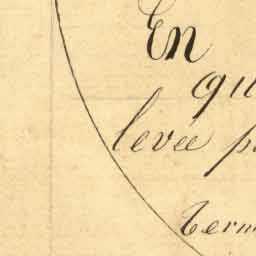 En
qu
levée p
term